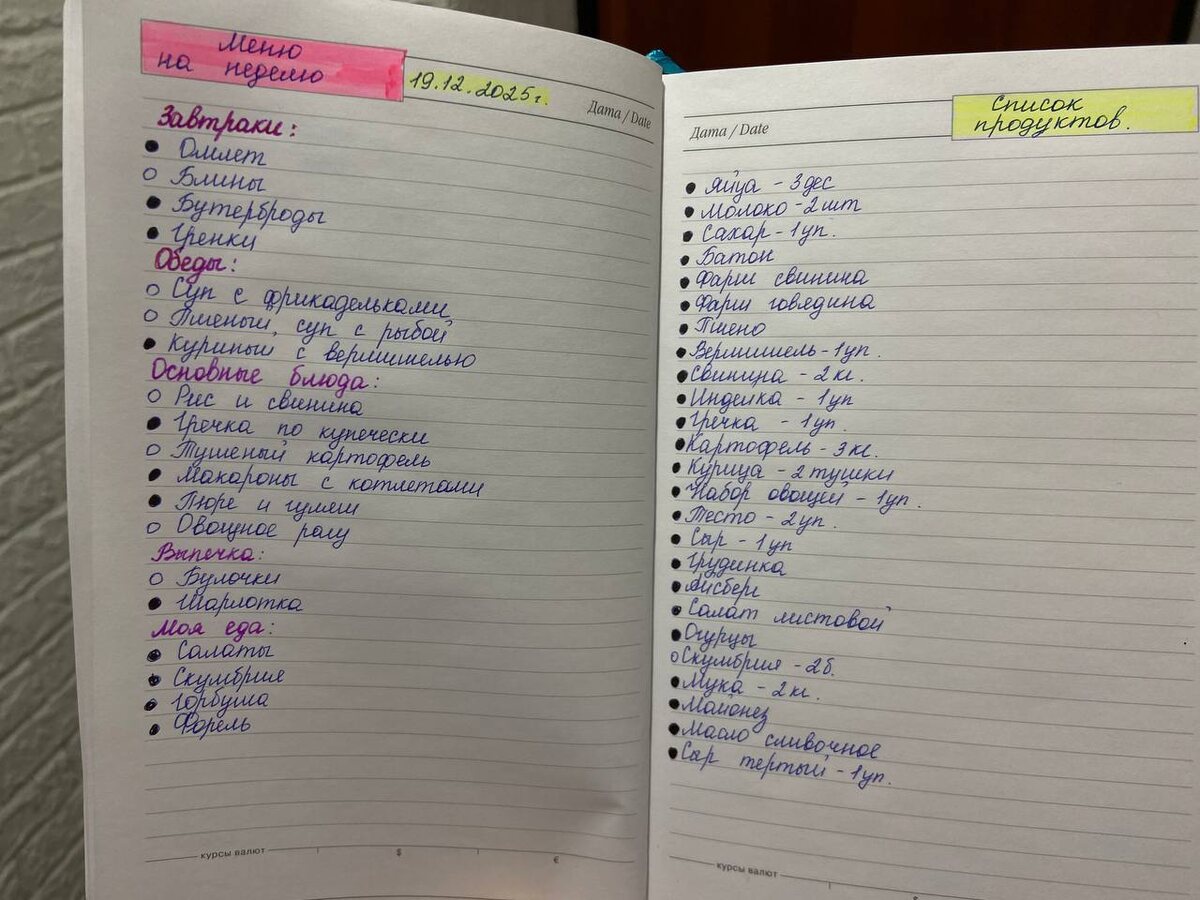 Меню
на неделю
19.12.2025г.
Дата / Date
Завтраки:
Омлет
Блины
Бутерброды
Гренки
Обеды:
Суп с фрикадельками
Пшеный суп с рыбой
Куриный с вермишелью
Основные блюда:
Рис и свинина
Гречка по купечески
Тушеный картофель
Макароны с котлетами
Пюре и гуляш
Овощное рагу
Выпечка:
Булочки
Шарлотка
Моя еда:
Салаты
Скумбрия
Горбуша
Форель
курсы валют
$
€
Дата / Date
Список
продуктов.
Яйца - 3 дес
Молоко - 2 шт
Сахар - 1 уп.
Батон
Фарш свинина
Фарш говядина
Пшено
Вермишель - 1 уп.
Свинина - 2 кг.
Индейка - 1 уп
Гречка - 1 уп.
Картофель - 3 кг.
Курица - 2 тушки
Набор овощей - 1 уп.
Тесто - 2 уп.
Сыр - 1 уп
Грудинка
Айсберг
Салат листовой
Огурцы
Скумбрия - 2 б.
Мука - 2 кг.
Майонез
Масло сливочное
Сыр тертый - 1 уп.
курсы валют